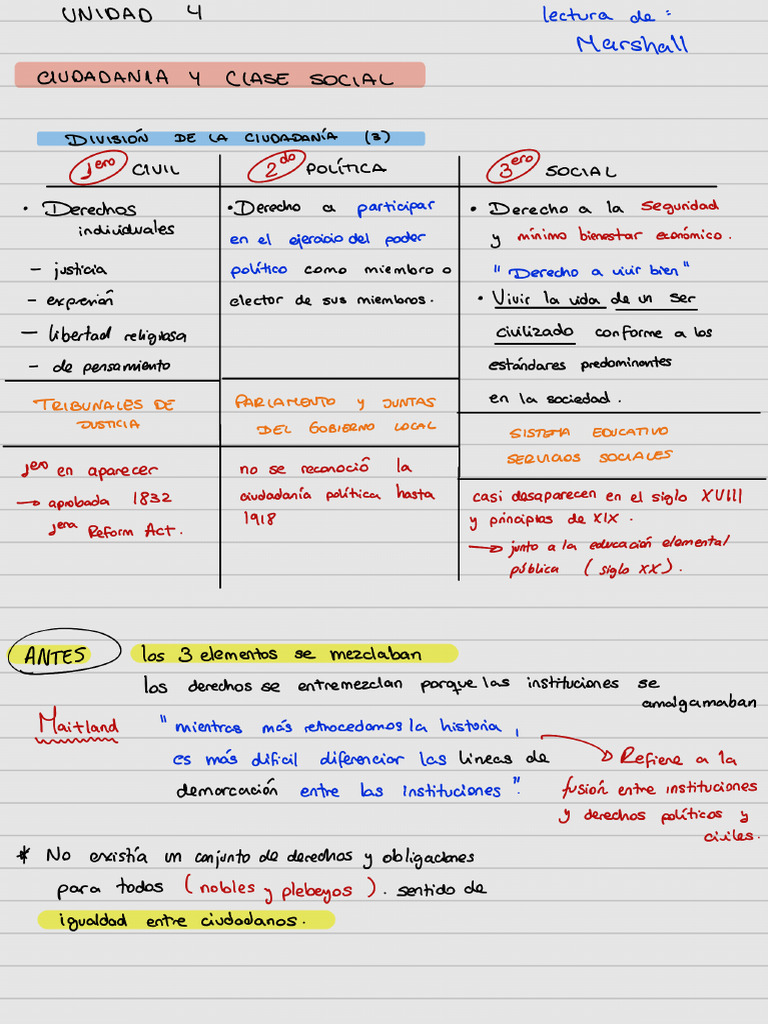 UNIDAD 4
lectura de:
Marshall
CIUDADANIA Y CLASE SOCIAL
DIVISIÓN DE LA CIUDADANÍA (3)
1ero CIVIL
• Derechos
individuales
– justicia
– expresión
– libertad religiosa
– de pensamiento
TRIBUNALES DE
JUSTICIA
1ero en aparecer
→ aprobada 1832
1era Reform Act.
2do POLÍTICA
• Derecho a participar
en el ejercicio del poder
político como miembro o
elector de sus miembros.
PARLAMENTO Y JUNTAS
DEL GOBIERNO LOCAL
no se reconoció la
ciudadanía política hasta
1918
3ero SOCIAL
• Derecho a la seguridad
y mínimo bienestar económico.
"Derecho a vivir bien"
• Vivir la vida de un ser
civilizado conforme a los
estándares predominantes
en la sociedad.
SISTEMA EDUCATIVO
SERVICIOS SOCIALES
casi desaparecen en el siglo XVIII
y principios de XIX.
→ junto a la educación elemental
pública (siglo XX).
ANTES los 3 elementos se mezclaban
los derechos se entremezclan porque las instituciones se
amalgamaban
Maitland "mientras más retrocedamos la historia,
es más difícil diferenciar las lineas de
demarcación entre las instituciones".
→ Refiere a la
fusión entre instituciones
y derechos políticos y
civiles.
* No existía un conjunto de derechos y obligaciones
para todos (nobles y plebeyos). sentido de
igualdad entre ciudadanos.